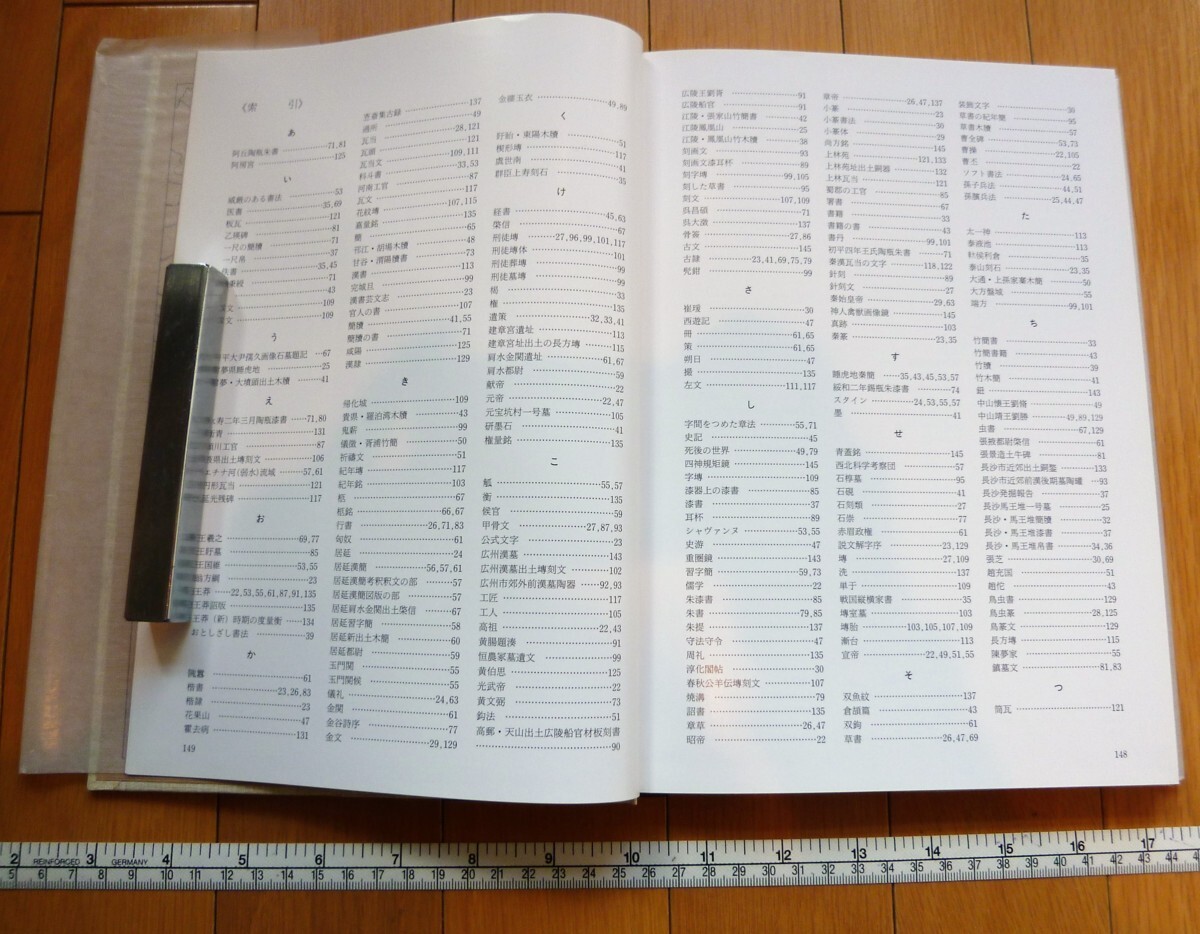 《索 引》
あ
阿丘陶瓶朱書 71,81
阿房宮 125
い
威厳のある書法 53
医書 35,69
板瓦 121
乙瑛碑 81
一尺の簡牘 71
一尺帛 37
35,45
71
43
109
109
う
67
25
41
え
寿二年三月陶瓶漆書 71,80
131
川工官 87
県出土塼刻文 106
エチナ河(弱水)流域 57,61
円形瓦当 121
延光残碑 117
お
王羲之 69,77
王肝墓 85
王国維 53,55
23
王莽 22,53,55,61,87,91,135
王莽詔版 135
王莽(新)時期の度量衡 134
おとしざし書法 39
か
隗囂 61
楷書 23,26,83
楷隷 23
花東山 47
霍去病 131
149
壱章集古録 137
過所 49
瓦当 28,121
瓦範 121
瓦当文 109,111
科斗書 33,53
河南工官 87
瓦文 117
花紋塼 107,115
嘉量銘 135
簡 65
邗江・胡場木牘 48
甘谷・渭陽簡書 73
漢書 113
完城旦 99
漢書芸文志 23
官人の書 107
簡牘 41,55
簡牘の書 71
咸陽 125
漢隷 129
き
帰化城 109
貴県・羅泊湾木牘 43
鬼薪 99
儀徴・胥浦竹簡 50
祈禱文 51
紀年塼 117
紀年銘 103
柩 67
柩銘 66,67
行書 26,71,83
匈奴 61
居延 24
居延漢簡 56,57,61
居延漢簡考釈釈文の部 57
居延漢簡図版の部 57
居延肩水金関出土棨信 67
居延習字簡 58
居延新出土木簡 60
居延都尉 59
玉門関 55
玉門関候 55
儀礼 24,63
金関 61
金谷詩序 77
金文 29,129
金縷玉衣 49,89
く
盱眙・東陽木牘 51
楔形塼 117
虞世南 41
群臣上寿刻石 35
け
経書 45,63
棨信 67
刑徒塼 27,96,99,101,117
刑徒塼体 101
刑徒葬塼 99
刑徒墓塼 99
楬 33
権 135
遣策 32,33,41
建章宮遺址 113
建章宮址出土の長方塼 115
肩水金関遺址 61,67
肩水都尉 59
献帝 22
元帝 22,47
元宝坑村一号墓 105
研墨石 41
権量銘 135
こ
觚 55,57
衡 135
候官 59
甲骨文 27,87,93
公式文字 23
広州漢墓 143
広州漢墓出土塼刻文 102
広州市郊外前漢墓陶器 92,93
工匠 117
工人 105
高祖 22,43
黄腸題湊 91
恒農冢墓遺文 99
黄伯思 125
光武帝 22
黄文弼 75
鈎法 51
高郵・天山出土広陵船官材板刻書
90
広陵王劉胥 91
広陵船官 91
江陵・張家山竹簡書 42
江陵鳳凰山 25
江陵・鳳凰山竹木牘 38
刻画文 93
刻画文漆耳杯 89
刻字塼 99,105
刻した草書 95
刻文 107,109
呉昌碩 71
呉大澂 137
骨簽 27,86
古文 145
古隷 23,41,69,75,79
髡鉗 99
さ
崔瑗 30
西遊記 47
冊 61,65
策 61,65
朔日 47
撮 135
左文 111,117
し
字間をつめた章法 55,71
史記 45
死後の世界 49,79
四神規矩鏡 145
字塼 109
漆器上の漆書 85
漆書 37
耳杯 89
シャヴァンヌ 53,55
史游 47
重圏鏡 143
習字簡 59,73
儒学 22
朱漆書 85
朱書 79,85
朱提 137
守法守令 47
周礼 135
淳化閣帖 30
春秋公羊伝塼刻文 107
焼溝 79
詔書 135
章草 26,47
昭帝 22
章帝 26,47,137
小篆 23
小篆書法 30
小篆体 29
尚方銘 145
上林苑 121,133
上林苑址出土銅器 132
上林瓦当 121
蜀郡の工官 85
署書 67
書籍 33
書籍の書 43
書丹 99,101
初平四年王氏陶朱書 71
秦漢瓦当の文字 118,122
針刻 89
針刻文 27
秦始皇帝 29,63
神人禽獣画像鏡 145
真跡 103
秦篆 23,35
す
睡虎地秦簡 35,43,45,53,57
綏和二年錫瓶朱漆書 74
スタイン 24,53,55,57
墨 41
せ
青蓋銘 145
西北科学考察団 57
石椁墓 95
石硯 41
石刻類 27
石祟 77
赤眉政権 61
説文解字序 23,129
塼 27,109
洗 137
単于 109
戦国縦横家書 35
塼室墓 103
塼胎 103,105,107,109
漸台 113
宣帝 22,49,51,55
そ
双魚紋 137
倉頡篇 43
双鈎 61
草書 26,47,69
装飾文字 36
草書の紀年簡 95
草書木牘 57
曹全碑 53,73
曹操 22,105
曹丕 22
ソフト書法 24,65
孫子兵法 44,51
孫臏兵法 25,44,47
た
太一神 113
泰液池 113
軑侯利倉 35
泰山刻石 23,35
大通・上孫家寨木簡 50
大方盤城 55
端方 99,101
ち
竹簡書 33
竹簡書籍 43
竹牘 39
竹木簡 41
鈕 143
中山懐王劉脩 49
中山靖王劉勝 49,89,129
虫書 67,129
張掖都尉棨信 61
張景造土牛碑 81
長沙市近郊出土銅鏧 133
長沙市近郊前漢後期墓陶罐 93
長沙発掘報告 37
長沙馬王堆一号墓 25
長沙・馬王堆簡牘 32
長沙・馬王堆漆書 37
長沙・馬王堆帛書 34,36
張芝 30,69
趙充国 51
趙佗 43
鳥虫書 129
鳥虫篆 28,125
鳥篆文 129
長方塼 115
陳夢家 55
鎮墓文 81,83
つ
筒瓦 121
148
2 REINFORCED 3 GERMANY 4 5 6 7 8 9 10 11 12 13 14 15 16 17
5 6 7 8 9 10 11 12 13 14 15 16 17 18 19 20 21 22 23 24 25 26 27 28 29 30 31 32 33 34 35 36 37 38 39 40 41 42 43 44